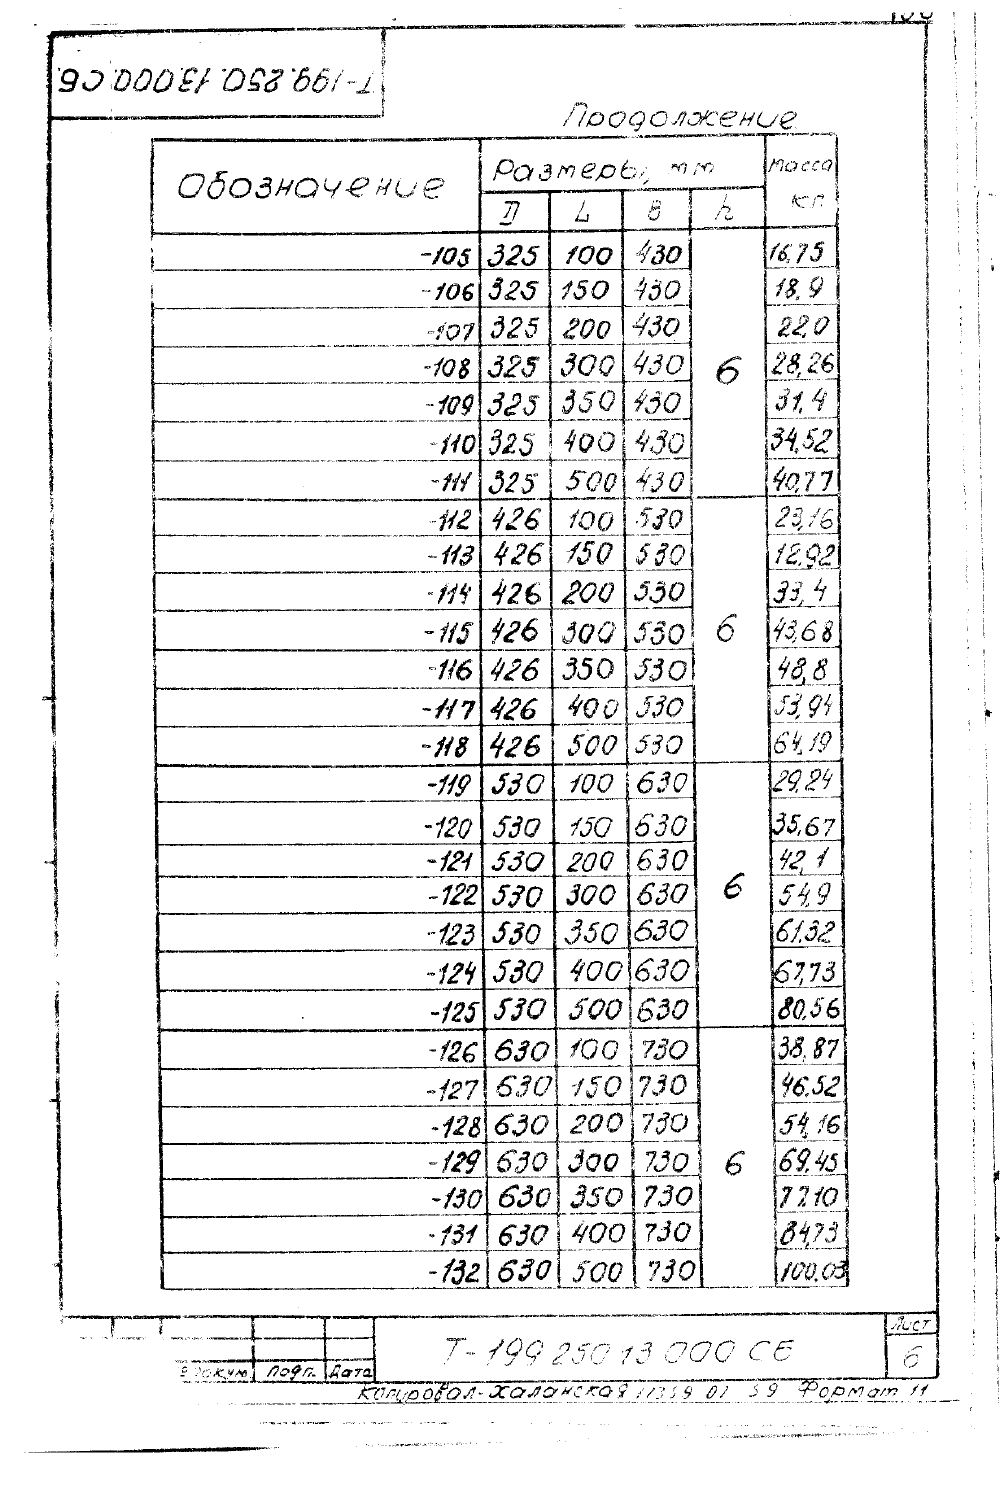 Т-199.250.13.000.СБ
Продолжение
Обозначение Размеры, мм Масса кг
D L B h
-105 325 100 430 16,75
-106 325 150 430 18,9
-107 325 200 430 22,0
-108 325 300 430 6 28,26
-109 325 350 430 31,4
-110 325 400 430 34,52
-111 325 500 430 40,77
-112 426 100 530 23,16
-113 426 150 530 12,92
-114 426 200 530 33,4
-115 426 300 530 6 43,68
-116 426 350 530 48,8
-117 426 400 530 53,94
-118 426 500 530 64,19
-119 530 100 630 29,24
-120 530 150 630 35,67
-121 530 200 630 42,1
-122 530 300 630 6 54,9
-123 530 350 630 61,32
-124 530 400 630 67,73
-125 530 500 630 80,56
-126 630 100 730 38,87
-127 630 150 730 46,52
-128 630 200 730 54,16
-129 630 300 730 6 69,45
-130 630 350 730 77,10
-131 630 400 730 84,73
-132 630 500 730 100,03
Т-199 250 13 000 СБ
Лист
6
докум. Подп. Дата
Копировал-Халанская Формат 11